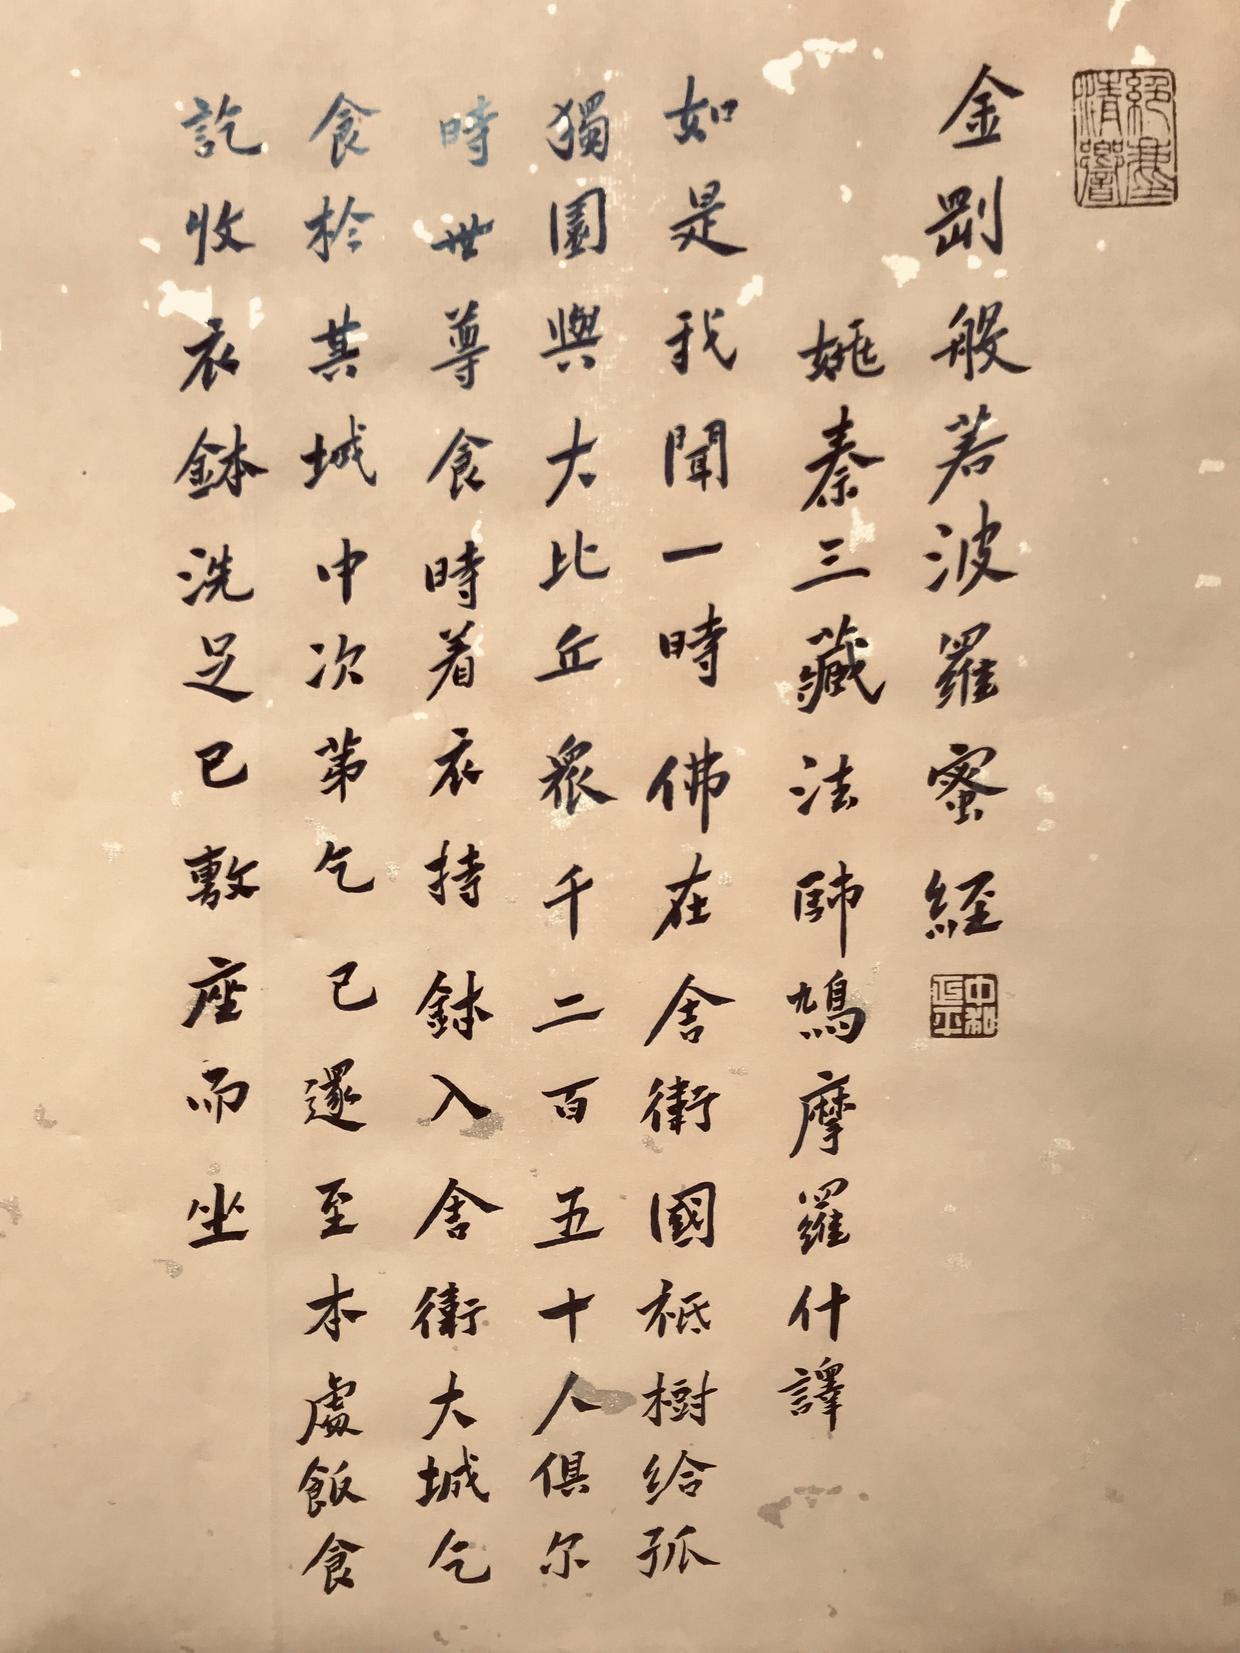 金剛般若波羅蜜經
姚秦三藏法師鳩摩羅什譯
如是我聞一時佛在舍衛國祇樹給孤
獨園與大比丘眾千二百五十人俱尔
時世尊食時着衣持鉢入舍衛大城乞
食於其城中次第乞已還至本處飯食
訖收衣鉢洗足已敷座而坐